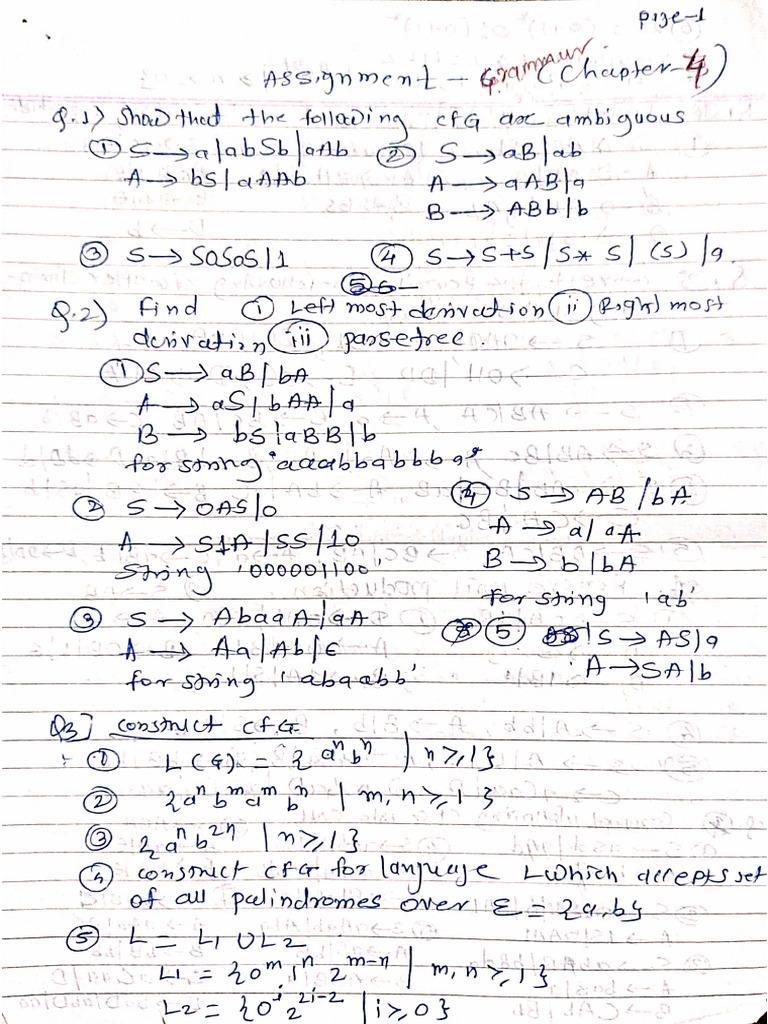 Page-1
Assignment - Grammar (Chapter-4)
Q.1) Show that the following CFG are ambiguous
① S → a|abSb|aAb ② S → aB|ab
A → bS|aAAb A → aAB|a
B → ABb|b
③ S → SaSaS|1 ④ S → S+S|S* S|(S)|a.
Q.2) Find ① Left most derivation ⓘⓘ Right most
derivation ⓘⓘⓘ parsetree.
① S → aB|bA
A → aS|bAA|a
B → bS|aBB|b
for string 'aaabbabbba'
② S → 0AS|0 ④ S → AB/bA
A → S1A|SS|10 A → a|aA
String '000001100' B → b|bA
for string 'ab'
③ S → AbaaA|aA ⑤ S → AS|a
A → Aa|Ab|ε A → SA|b
for string 'abaabb'
Q3] construct CFG
① L(G) = {a^n b^n | n≥1}
② {a^n b^m a^m b^n | m,n ≥1}
③ {a^n b^2n | n≥1}
④ construct CFG for language L which accepts set
of all palindromes over Σ = {a,b}
⑤ L = L1 ∪ L2
L1 = {0^m 1^n 2^m-n | m,n ≥1}
L2 = {0^i 2^2i-2 | i≥0}